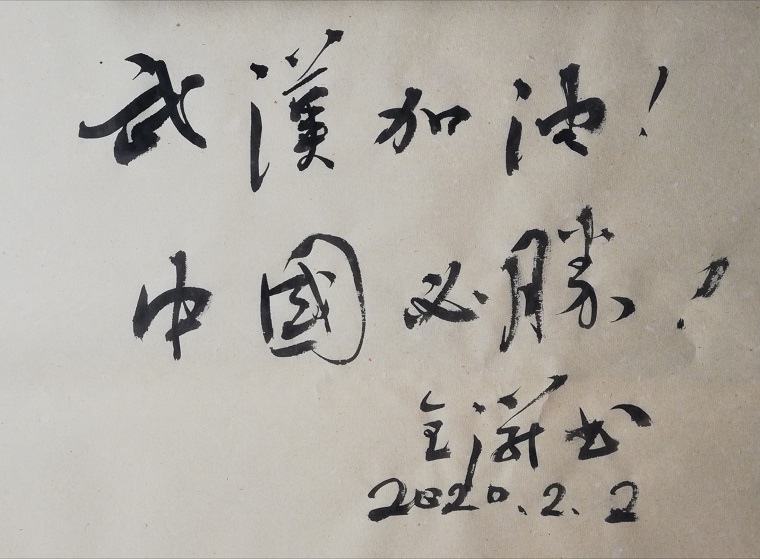 武漢加油！
中國必勝！
书
2020.2.2